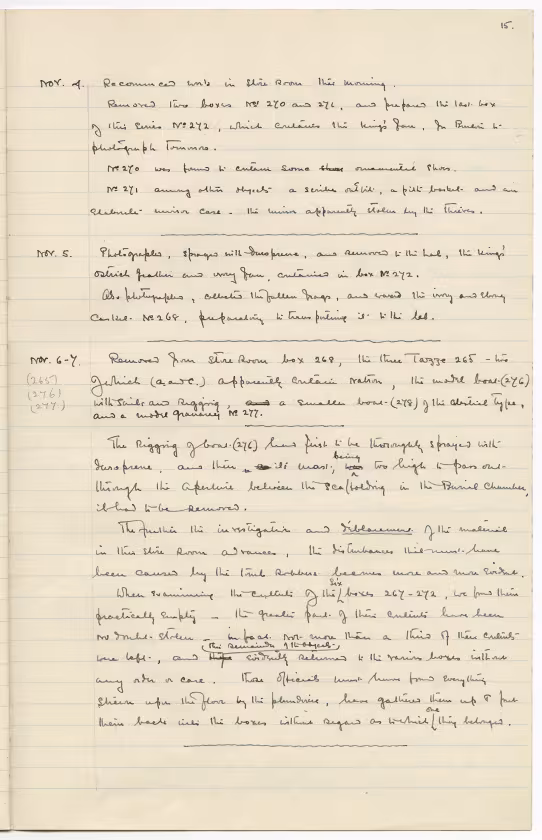 15.
Nov. 4. Recommenced work in Store Room this morning.
Removed two boxes Nos 270 and 271, and prepared the last box
of this series No 272, which contains the King's fan, for Burton to
photograph tomorrow.
No 270 was found to contain some ornamental shoes.
No 271 among other objects a scribe outfit, a pith basket and an
elaborate mirror case - the mirror apparently stolen by the thieves.
Nov. 5. Photographed, sprayed with duroprene, and removed to the lab, the King's
ostrich feather and ivory fan, contained in box No 272.
Also photographed, collected the fallen frags, and waxed the ivory and ebony
casket No 268, preparatory to transporting it to the lab.
Nov. 6-7. Removed from Store Room box 268, the three Tazze 265 - two
(265) of which (a. and c.) apparently contain natron, the model boat (276)
(276) with sails and rigging, a smaller boat (278) of the celestial type,
(277) and a model granary No 277.
The Rigging of boat (276) had first to be thoroughly sprayed with
duroprene, and then its mast, being too high to pass out
through the aperture between the scaffolding in the Burial Chamber,
it had to be removed.
The further the investigation and displacement of the material
in this Store Room advances, the disturbances that must have
been caused by the tomb robbers becomes more and more evident.
When examining the contents of the six boxes 267-272, we found them
practically empty - the greater part of their contents have been
no doubt stolen - in fact not more than a third of their contents
were left, and (the remainder of the objects) evidently returned to the various boxes without
any order or care. Those officials must have found everything
strewn upon the floor by the plunderers, have gathered them up & put
them back into the boxes without regard as to which one they belonged.